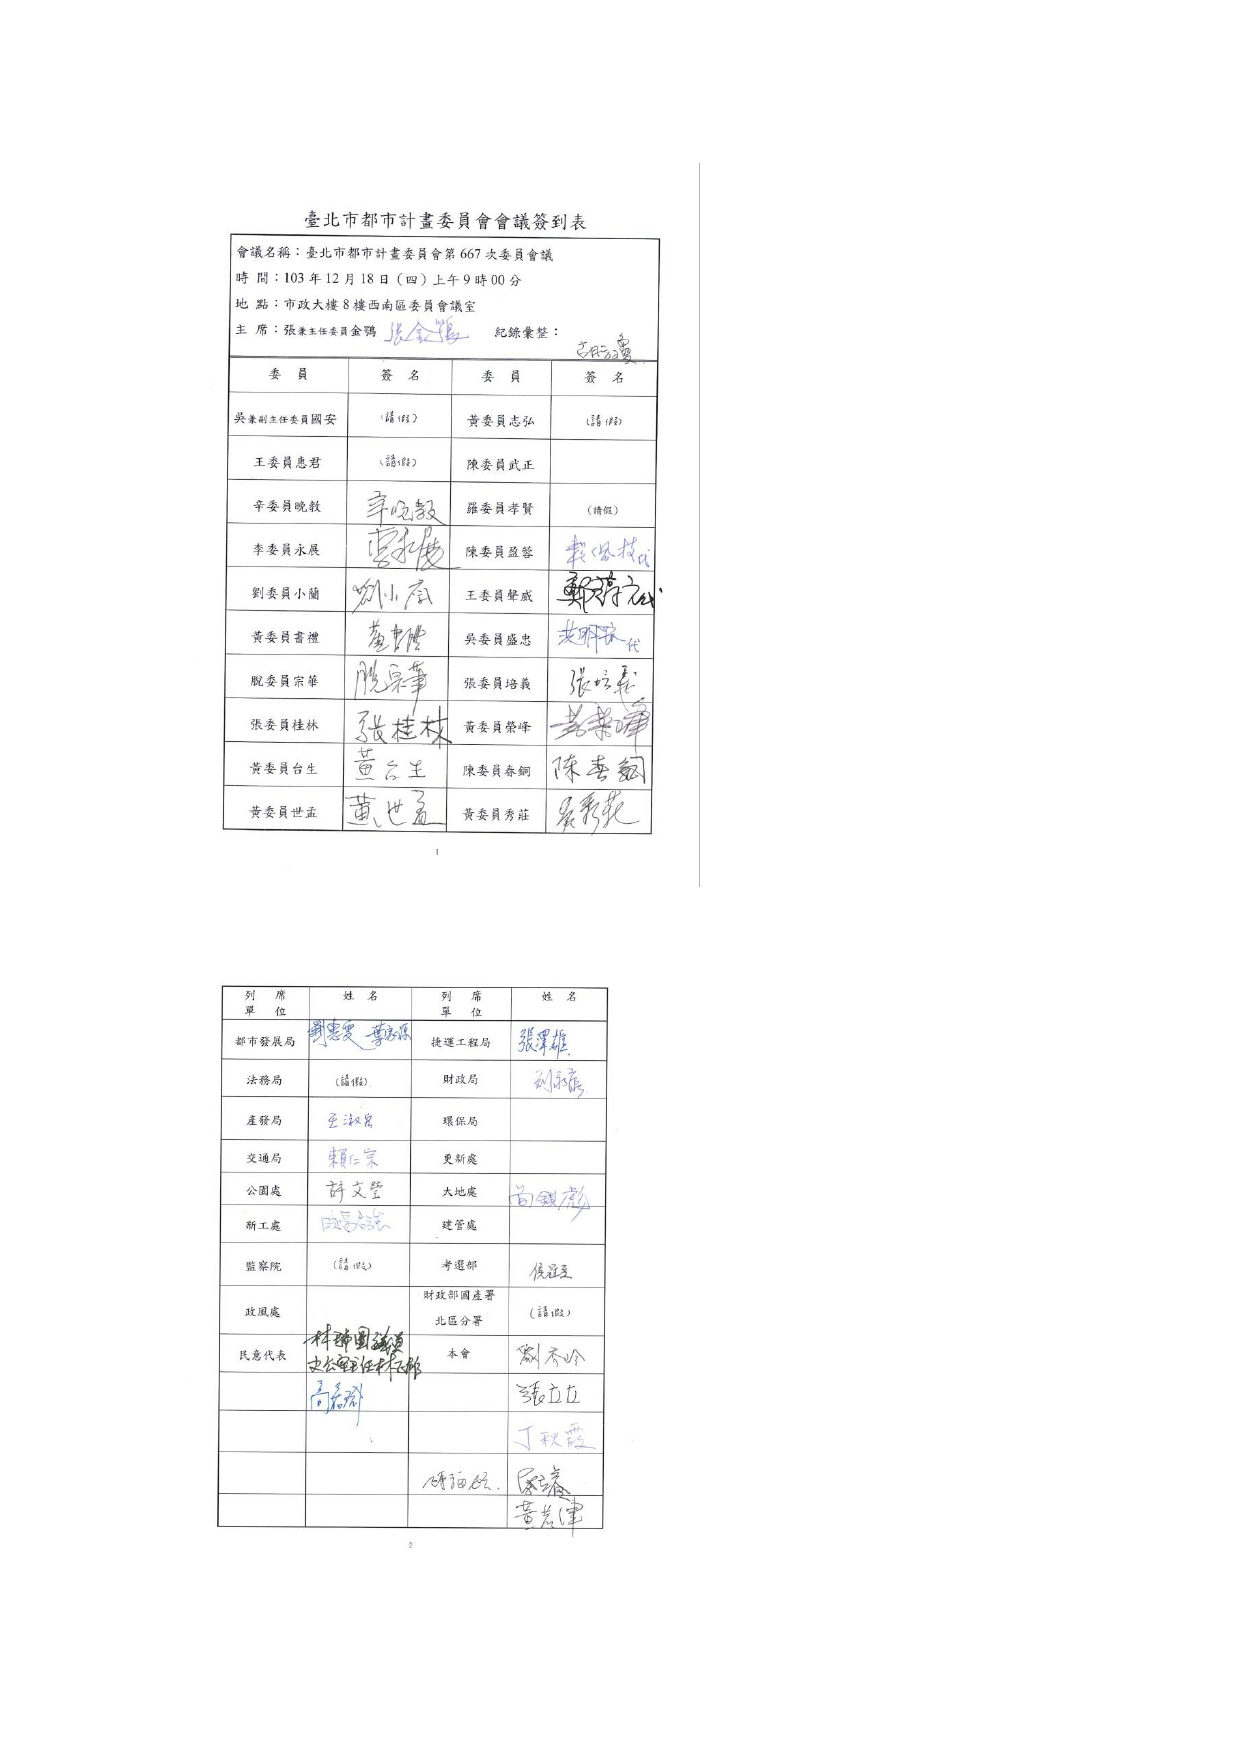 臺北市都市計畫委員會會議簽到表
會議名稱：臺北市都市計畫委員會第 667 次委員會議
時 間：103 年 12 月 18 日（四）上午 9 時 00 分
地 點：市政大樓 8 樓西南區委員會議室
主 席：張兼主任委員金鶚 張金鶚 紀錄彙整：
委 員 簽 名 委 員 簽 名
吳兼副主任委員國安 (請假) 黃委員志弘 (請假)
王委員惠君 (請假) 陳委員武正
辛委員晚教 辛晚教 羅委員孝賢 (請假)
李委員永展 李永展 陳委員盈蓉
劉委員小蘭 劉小蘭 王委員聲威
黃委員書禮 黃書禮 吳委員盛忠
脫委員宗華 脫宗華 張委員培義 張培義
張委員桂林 張桂林 黃委員榮峰 黃榮峰
黃委員台生 黃台生 陳委員春銅 陳春銅
黃委員世孟 黃世孟 黃委員秀莊
1
列 席 單 位 姓 名 列 席 單 位 姓 名
都市發展局 劉惠雯 捷運工程局 張澤雄
法務局 (請假) 財政局
產發局 環保局
交通局 賴仁宗 更新處
公園處 許文瑩 大地處
新工處 建管處
監察院 (請假) 考選部
政風處 財政部國產署北區分署 (請假)
民意代表 林瑞圖議員 本會 劉秀玲
張立立
丁秋霞
黃若津
2